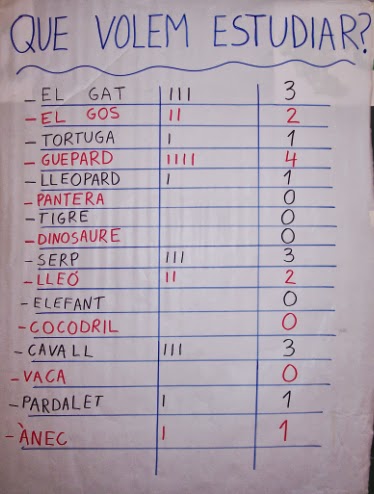 QUE VOLEM ESTUDIAR?
- EL GAT III 3
- EL GOS II 2
- TORTUGA I 1
- GUEPARD IIII 4
- LLEOPARD I 1
- PANTERA 0
- TIGRE 0
- DINOSAURE 0
- SERP III 3
- LLEÓ II 2
- ELEFANT 0
- COCODRIL 0
- CAVALL III 3
- VACA 0
- PARDALET I 1
- ÀNEC I 1